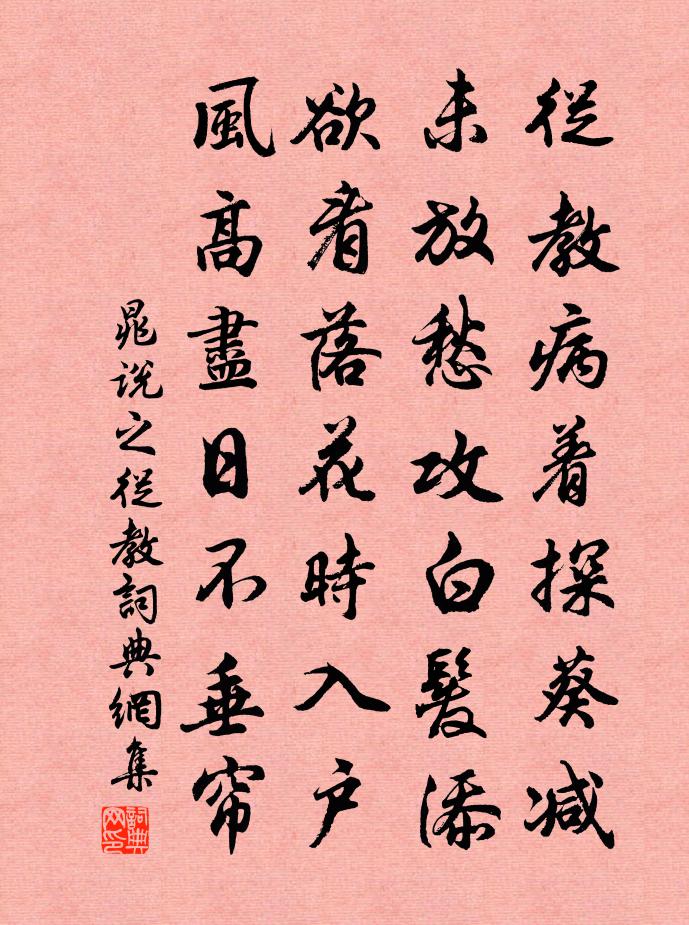 從教病着探葵減
未放愁攻白髮添
欲看落花時入户
風高盡日不垂帘
晁說之從教詞典網集
詞典网印